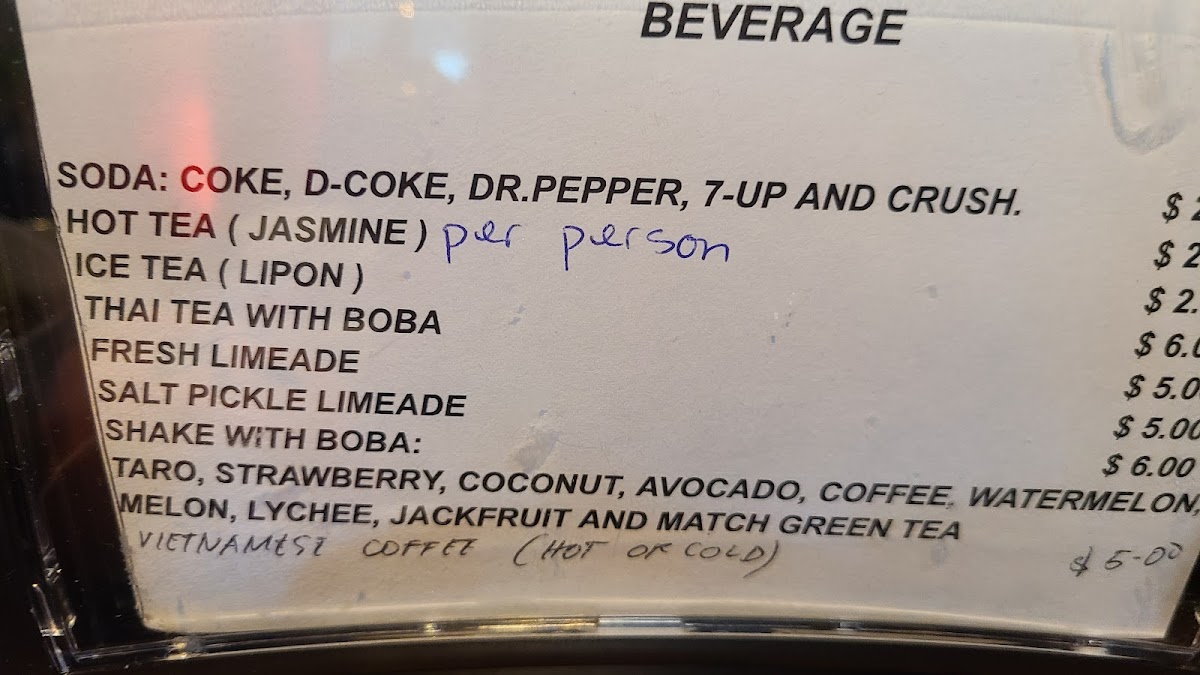 BEVERAGE
SODA: COKE, D-COKE, DR.PEPPER, 7-UP AND CRUSH. $ 2
HOT TEA ( JASMINE ) per person $ 2
ICE TEA ( LIPON ) $ 2.
THAI TEA WITH BOBA $ 6.0
FRESH LIMEADE $ 5.0
SALT PICKLE LIMEADE $ 5.00
SHAKE WITH BOBA: $ 6.00
TARO, STRAWBERRY, COCONUT, AVOCADO, COFFEE, WATERMELON,
MELON, LYCHEE, JACKFRUIT AND MATCH GREEN TEA
VIETNAMESE COFFEE (HOT OR COLD) $ 5-00